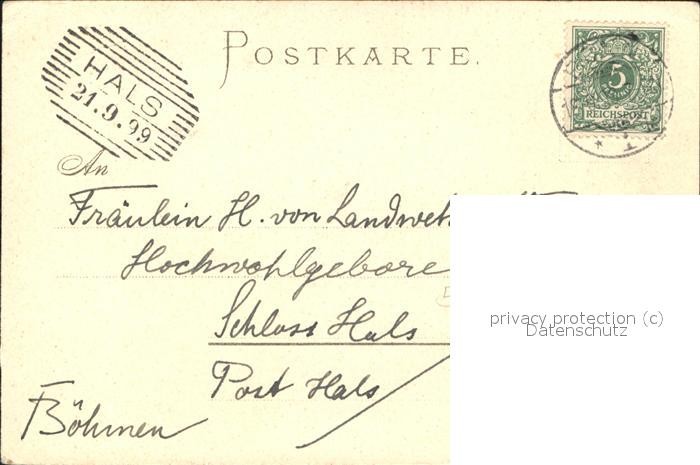 POSTKARTE.
HALS
21.9.99
5
PFENNIG
REICHSPOST
An
Fräulein H. von
Hochwohlgebore
Schloss Hals
Post Hals
Böhmen
privacy protection (c)
Datenschutz